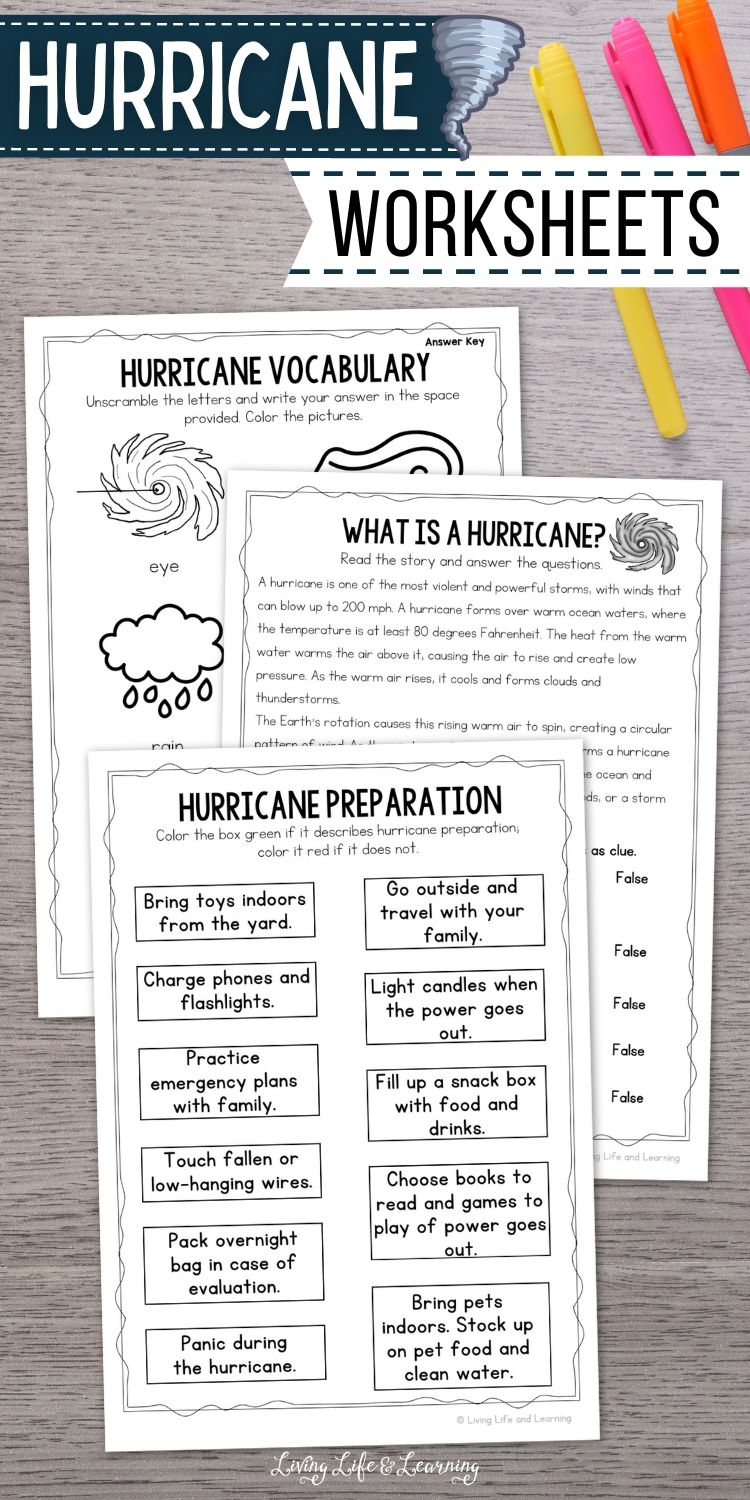 HURRICANE
WORKSHEETS
Answer Key
HURRICANE VOCABULARY
Unscramble the letters and write your answer in the space
provided. Color the pictures.
eye
rain
WHAT IS A HURRICANE?
Read the story and answer the questions.
A hurricane is one of the most violent and powerful storms, with winds that
can blow up to 200 mph. A hurricane forms over warm ocean waters, where
the temperature is at least 80 degrees Fahrenheit. The heat from the warm
water warms the air above it, causing the air to rise and create low
pressure. As the warm air rises, it cools and forms clouds and
thunderstorms.
The Earth's rotation causes this rising warm air to spin, creating a circular
pattern of wind. As
rms a hurricane
e ocean and
ds, or a storm
as clue.
False
False
False
False
False
ng Life and Learning
HURRICANE PREPARATION
Color the box green if it describes hurricane preparation;
color it red if it does not.
Bring toys indoors
from the yard.
Charge phones and
flashlights.
Practice
emergency plans
with family.
Touch fallen or
low-hanging wires.
Pack overnight
bag in case of
evaluation.
Panic during
the hurricane.
Go outside and
travel with your
family.
Light candles when
the power goes
out.
Fill up a snack box
with food and
drinks.
Choose books to
read and games to
play of power goes
out.
Bring pets
indoors. Stock up
on pet food and
clean water.
© Living Life and Learning
Living Life & Learning